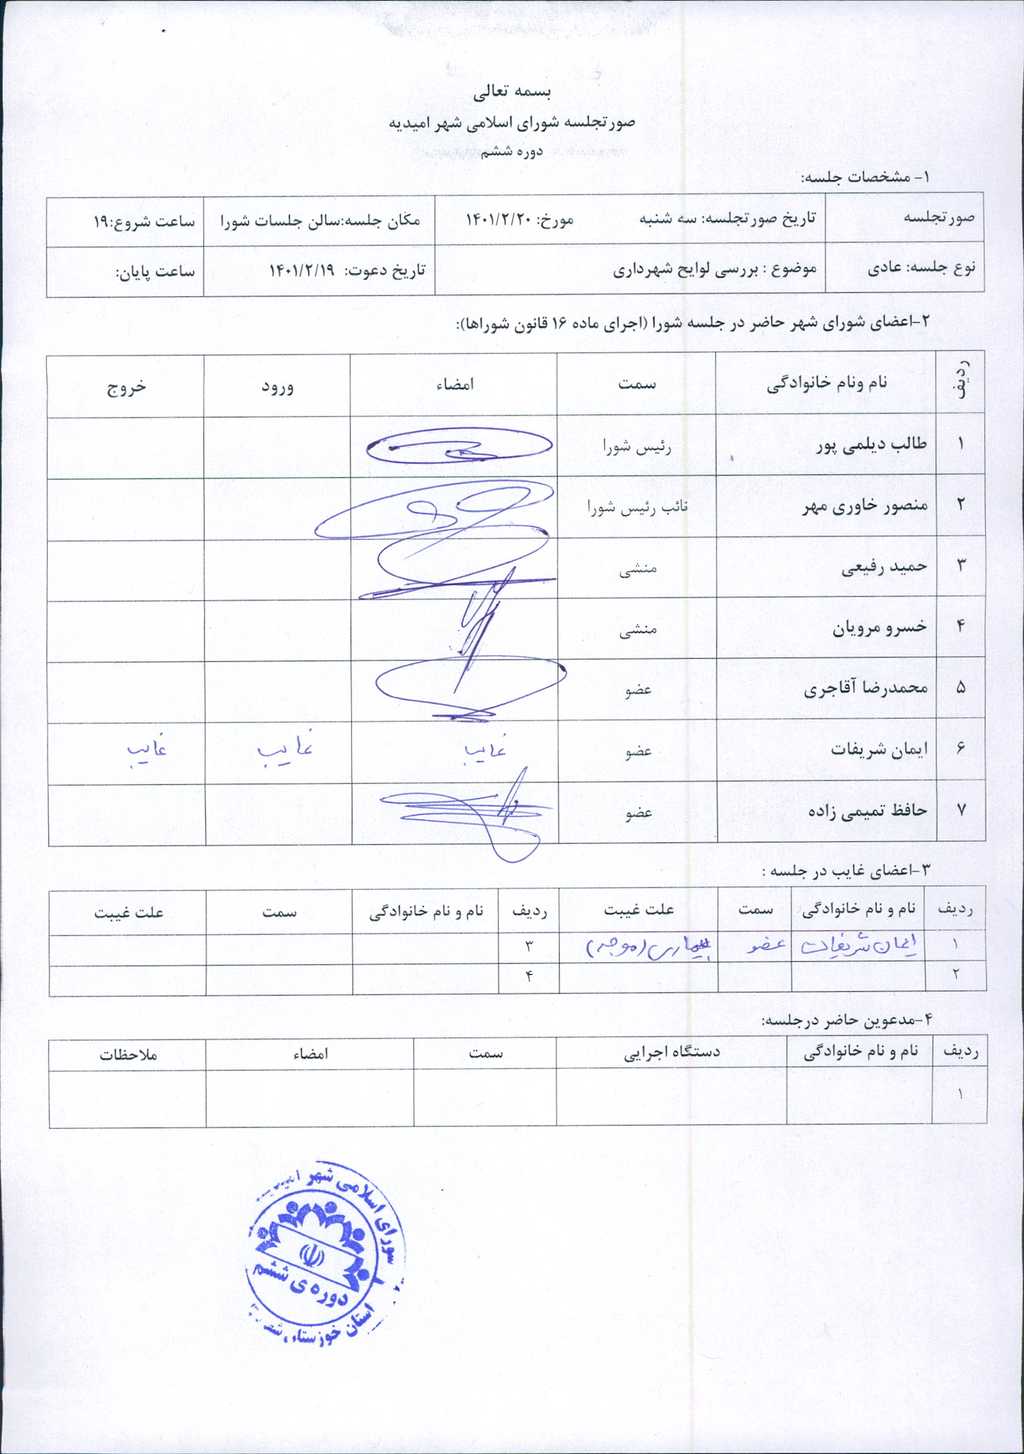 بسمه تعالی
صورتجلسه شورای اسلامی شهر امیدیه
دوره ششم
۱- مشخصات جلسه:
صورتجلسه تاریخ صورتجلسه: سه شنبه مورخ: ۱۴۰۱/۲/۲۰ مکان جلسه:سالن جلسات شورا ساعت شروع:۱۹
نوع جلسه: عادی موضوع : بررسی لوایح شهرداری تاریخ دعوت: ۱۴۰۱/۲/۱۹ ساعت پایان:
۲-اعضای شورای شهر حاضر در جلسه شورا (اجرای ماده ۱۶ قانون شوراها):
ردیف نام ونام خانوادگی سمت امضاء ورود خروج
۱ طالب دیلمی پور رئیس شورا
۲ منصور خاوری مهر نائب رئیس شورا
۳ حمید رفیعی منشی
۴ خسرو مرویان منشی
۵ محمدرضا آقاجری عضو
۶ ایمان شریفات عضو غایب غایب غایب
۷ حافظ تمیمی زاده عضو
۳-اعضای غایب در جلسه :
ردیف نام و نام خانوادگی سمت علت غیبت ردیف نام و نام خانوادگی سمت علت غیبت
۱ ایمان شریفات عضو بیماری (موجه) ۳
۲ ۴
۴-مدعوین حاضر درجلسه:
ردیف نام و نام خانوادگی دستگاه اجرایی سمت امضاء ملاحظات
۱
شورای اسلامی شهر امیدیه
دوره ی ششم
استان خوزستان